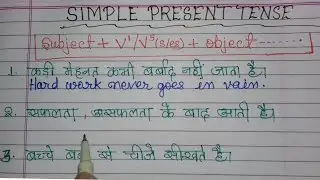 SIMPLE PRESENT TENSE
Subject + V¹/V⁵(s/es) + object ......
1. कड़ी मेहनत कभी बर्बाद नहीं जाता है।
Hard work never goes in vain.
2. सफलता, असफलता के बाद आती है।
3. बच्चे से चीजें सीखते है।